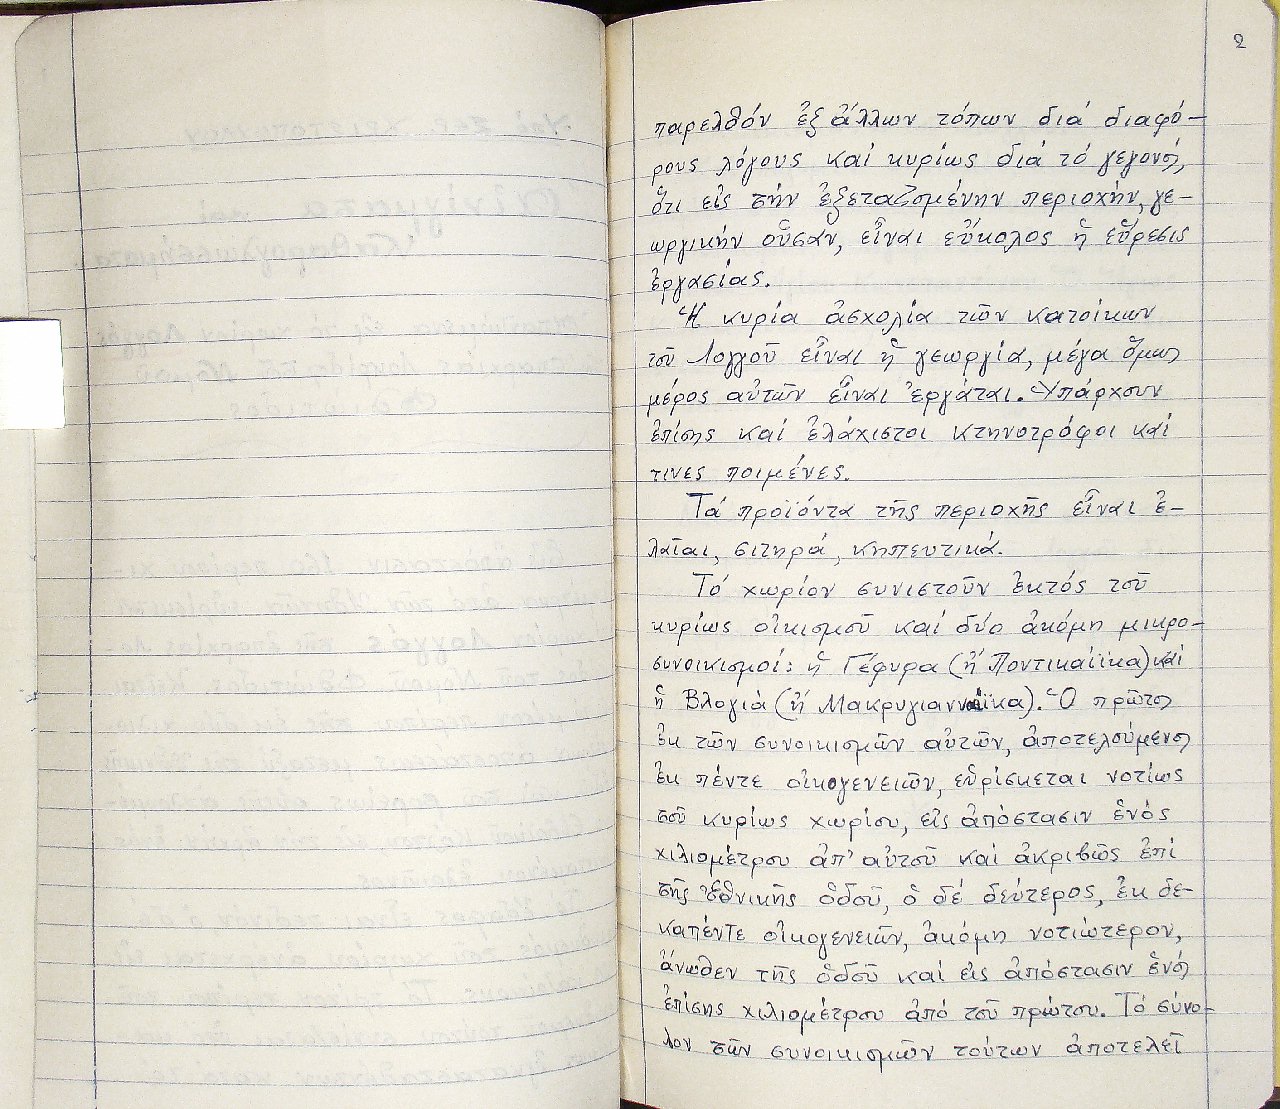 2
παρελθόν ἐξ ἄλλων τόπων διά διαφό-
ρους λόγους καί κυρίως διά τό γεγονός,
ὅτι εἰς τήν ἐξεταζομένην περιοχήν, γε-
ωργικήν οὖσαν, εἶναι εὔκολος ἡ εὕρεσις
ἐργασίας.
Ἡ κυρία ἀσχολία τῶν κατοίκων
τοῦ Λογγοῦ εἶναι ἡ γεωργία, μέγα ὅμως
μέρος αὐτῶν εἶναι ἐργάται. Ὑπάρχουν
ἐπίσης καί ἐλάχιστοι κτηνοτρόφοι καί
τινες ποιμένες.
Τά προϊόντα τῆς περιοχῆς εἶναι ἐ-
λαῖαι, σιτηρά, κηπευτικά.
Τό χωρίον συνιστοῦν ἐκτός τοῦ
κυρίως οἰκισμοῦ καί δύο ἀκόμη μικρο-
συνοικισμοί: ἡ Γέφυρα (ἤ Ποντικαίϊκα) καί
ἡ Βλογιά (ἤ Μακρυγιανναίϊκα). Ὁ πρῶτος
ἐκ τῶν συνοικισμῶν αὐτῶν, ἀποτελούμενος
ἐκ πέντε οἰκογενειῶν, εὑρίσκεται νοτίως
τοῦ κυρίως χωρίου, εἰς ἀπόστασιν ἑνός
χιλιομέτρου ἀπ' αὐτοῦ καί ἀκριβῶς ἐπί
τῆς ἐθνικῆς ὁδοῦ, ὁ δέ δεύτερος, ἐκ δε-
καπέντε οἰκογενειῶν, ἀκόμη νοτιώτερον,
ἄνωθεν τῆς ὁδοῦ καί εἰς ἀπόστασιν ἑνός
ἐπίσης χιλιομέτρου ἀπό τοῦ πρώτου. Τό σύνο-
λον τῶν συνοικισμῶν τούτων ἀποτελεῖ